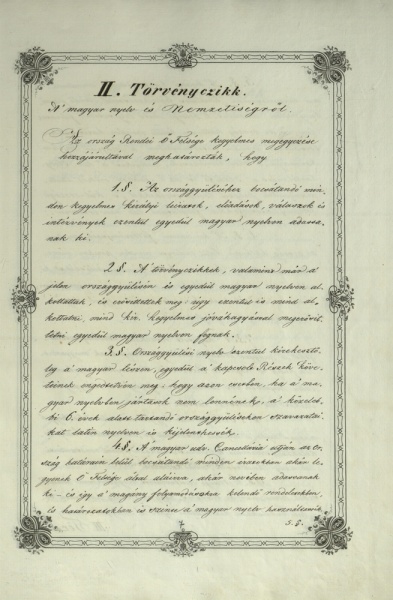 II. Törvényczikk.
A' magyar nyelv és Nemzetiségről.
Az ország Rendei Ő Felsége kegyelmes megegyezése
hozzájárultával meghatározták, hogy
1. §. Az országgyűléshez bocsátandó min-
den kegyelmes királyi leirások, előadások, válaszok és
intézvények ezentúl egyedűl magyar nyelven adassa-
nak ki.
2 §. A törvényczikkek, valamint már a'
jelen országgyűlésen is egyedűl magyar nyelven al-
kottattak, és erősittettek meg: úgy ezentúl is mind al-
kottatni mind kir. kegyelmes jóváhagyással megerősit-
tetni egyedűl magyar nyelven fognak.
3. §. Országgyűlési nyelv ezentúl kirekesztő-
leg a' magyar lészen, egyedűl a' kapcsolt Részek köve-
teinek engedtetvén meg: hogy azon esetben, ha a' ma-
gyar nyelvben jártasok nem lennének, a' közeleb-
bi 6. évek alatt tartandó országgyűléseken szavazatai-
kat latin nyelven is kijelenthessék.
4. §. A' magyar udv. Cancellária útján az or-
szág határain belűl bocsátandó minden iratokban akár le-
gyenek Ő Felsége által aláirva, akár nevében adassanak
ki – és így a' magány folyamodásokra kelendő rendeletekben,
és határozatokban is szinte a' magyar nyelv használtassék
7.
5. §.